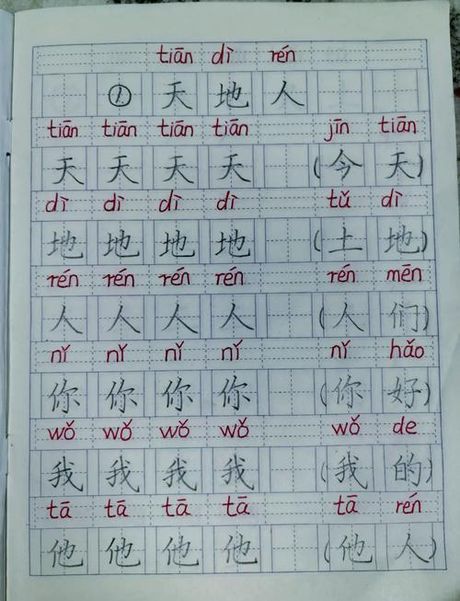 tiān dì rén
① 天 地 人
tiān tiān tiān tiān jīn tiān
天 天 天 天 (今 天)
dì dì dì dì tǔ dì
地 地 地 地 (土 地)
rén rén rén rén rén mēn
人 人 人 人 (人 们)
nǐ nǐ nǐ nǐ nǐ hǎo
你 你 你 你 (你 好)
wǒ wǒ wǒ wǒ wǒ de
我 我 我 我 (我 的)
tā tā tā tā tā rén
他 他 他 他 (他 人)